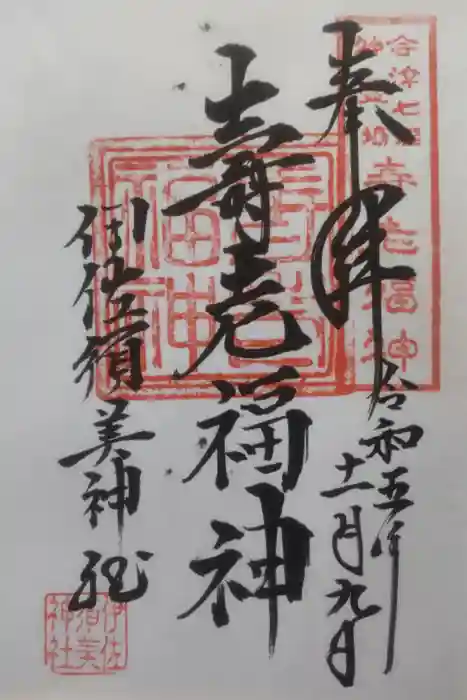 奉拝
令和五年
十一月九日
壽老福神
伊佐須美神社
会津七福
神霊場
寿老福神
寿老
福神
伊佐
須美
神社